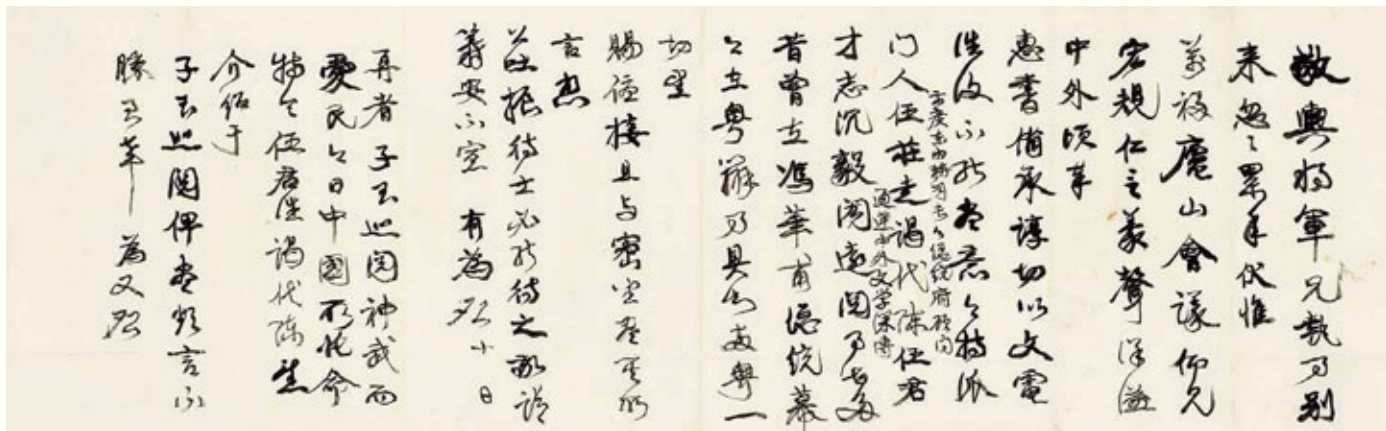 敬輿將軍兄執事別
來忽忽累年伏惟
萬福廬山會議仰見
宏規仁言義聲洋溢
中外頃奉
惠書備承諄切以文電
往復不能盡意今特派
門人伍莊走謁代陳伍君
才志沉毅閱遠閱事甚多
昔曾在馮華甫總統幕
今在粵辦事具知兩粵一
切望
賜優接且與密坐盡其所
言想
茲根待士必能待之敬請
籌安不宣 有為啟 十日
再者子玉巡閱神武而
愛民今日中國所托命
特令伍君往謁代陳焉
介紹于
子玉巡閱俾盡欲言不
勝至幸 為又啟